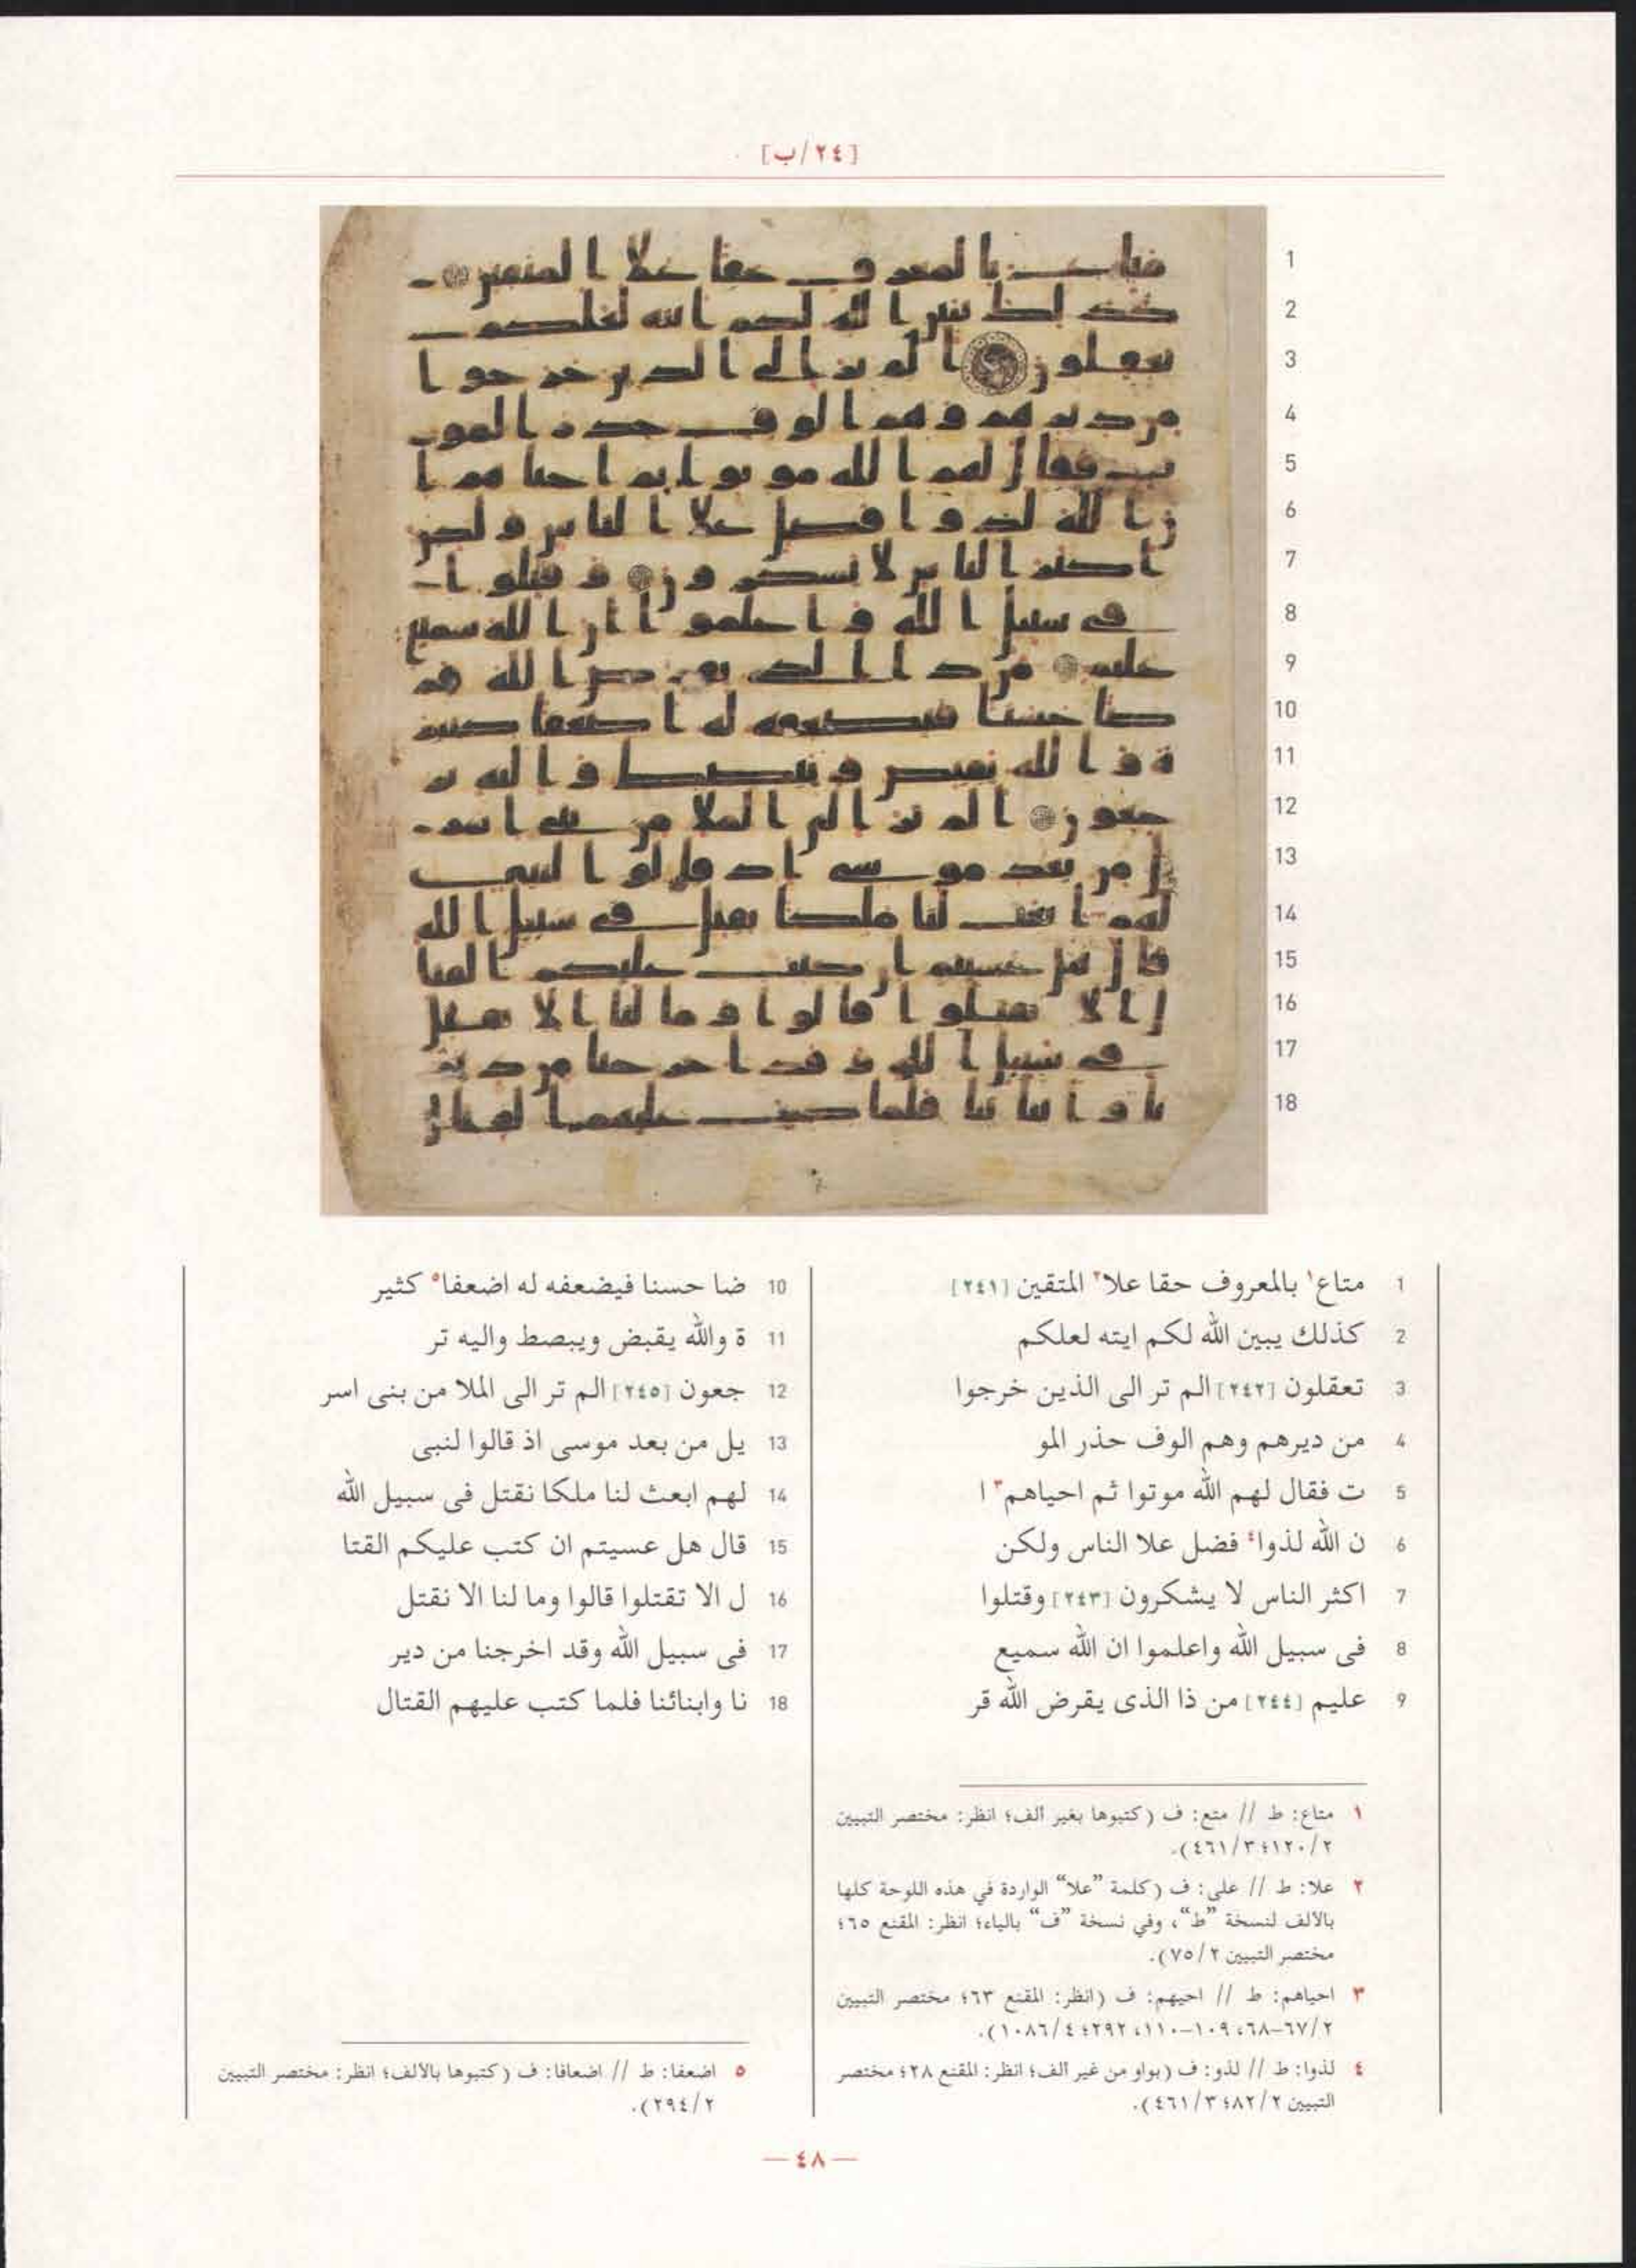 [٢٤/ب]
1 متاع١ بالمعروف حقا علا٢ المتقين [٢٤١]
2 كذلك يبين الله لكم ايته لعلكم
3 تعقلون [٢٤٢] الم تر الى الذين خرجوا
4 من ديرهم وهم الوف حذر المو
5 ت فقال لهم الله موتوا ثم احياهم٣ ا
6 ن الله لذوا٤ فضل علا الناس ولكن
7 اكثر الناس لا يشكرون [٢٤٣] وقتلوا
8 فى سبيل الله واعلموا ان الله سميع
9 عليم [٢٤٤] من ذا الذى يقرض الله قر
10 ضا حسنا فيضعفه له اضعفا٥ كثير
11 ة والله يقبض ويبصط واليه تر
12 جعون [٢٤٥] الم تر الى الملا من بنى اسر
13 يل من بعد موسى اذ قالوا لنبى
14 لهم ابعث لنا ملكا نقتل فى سبيل الله
15 قال هل عسيتم ان كتب عليكم القتا
16 ل الا تقتلوا قالوا وما لنا الا نقتل
17 فى سبيل الله وقد اخرجنا من دير
18 نا وابنائنا فلما كتب عليهم القتال
١ متاع: ط // متع: ف (كتبوها بغير ألف؛ انظر: مختصر التبيين
٢/١٢٠؛ ٣/٤٦١).
٢ علا: ط // على: ف (كلمة ”علا“ الواردة في هذه اللوحة كلها
بالألف لنسخة ”ط“، وفي نسخة ”ف“ بالياء؛ انظر: المقنع ٦٥؛
مختصر التبيين ٢/٧٥).
٣ احياهم: ط // احيهم: ف (انظر: المقنع ٦٣؛ مختصر التبيين
٢/٦٧–٦٨، ١٠٩–١١٠، ٢٩٢؛ ٤/١٠٨٦).
٤ لذوا: ط // لذو: ف (بواو من غير ألف؛ انظر: المقنع ٢٨؛ مختصر
التبيين ٢/٨٢؛ ٣/٤٦١).
٥ اضعفا: ط // اضعافا: ف (كتبوها بالألف؛ انظر: مختصر التبيين
٢/٢٩٤).
— ٤٨ —